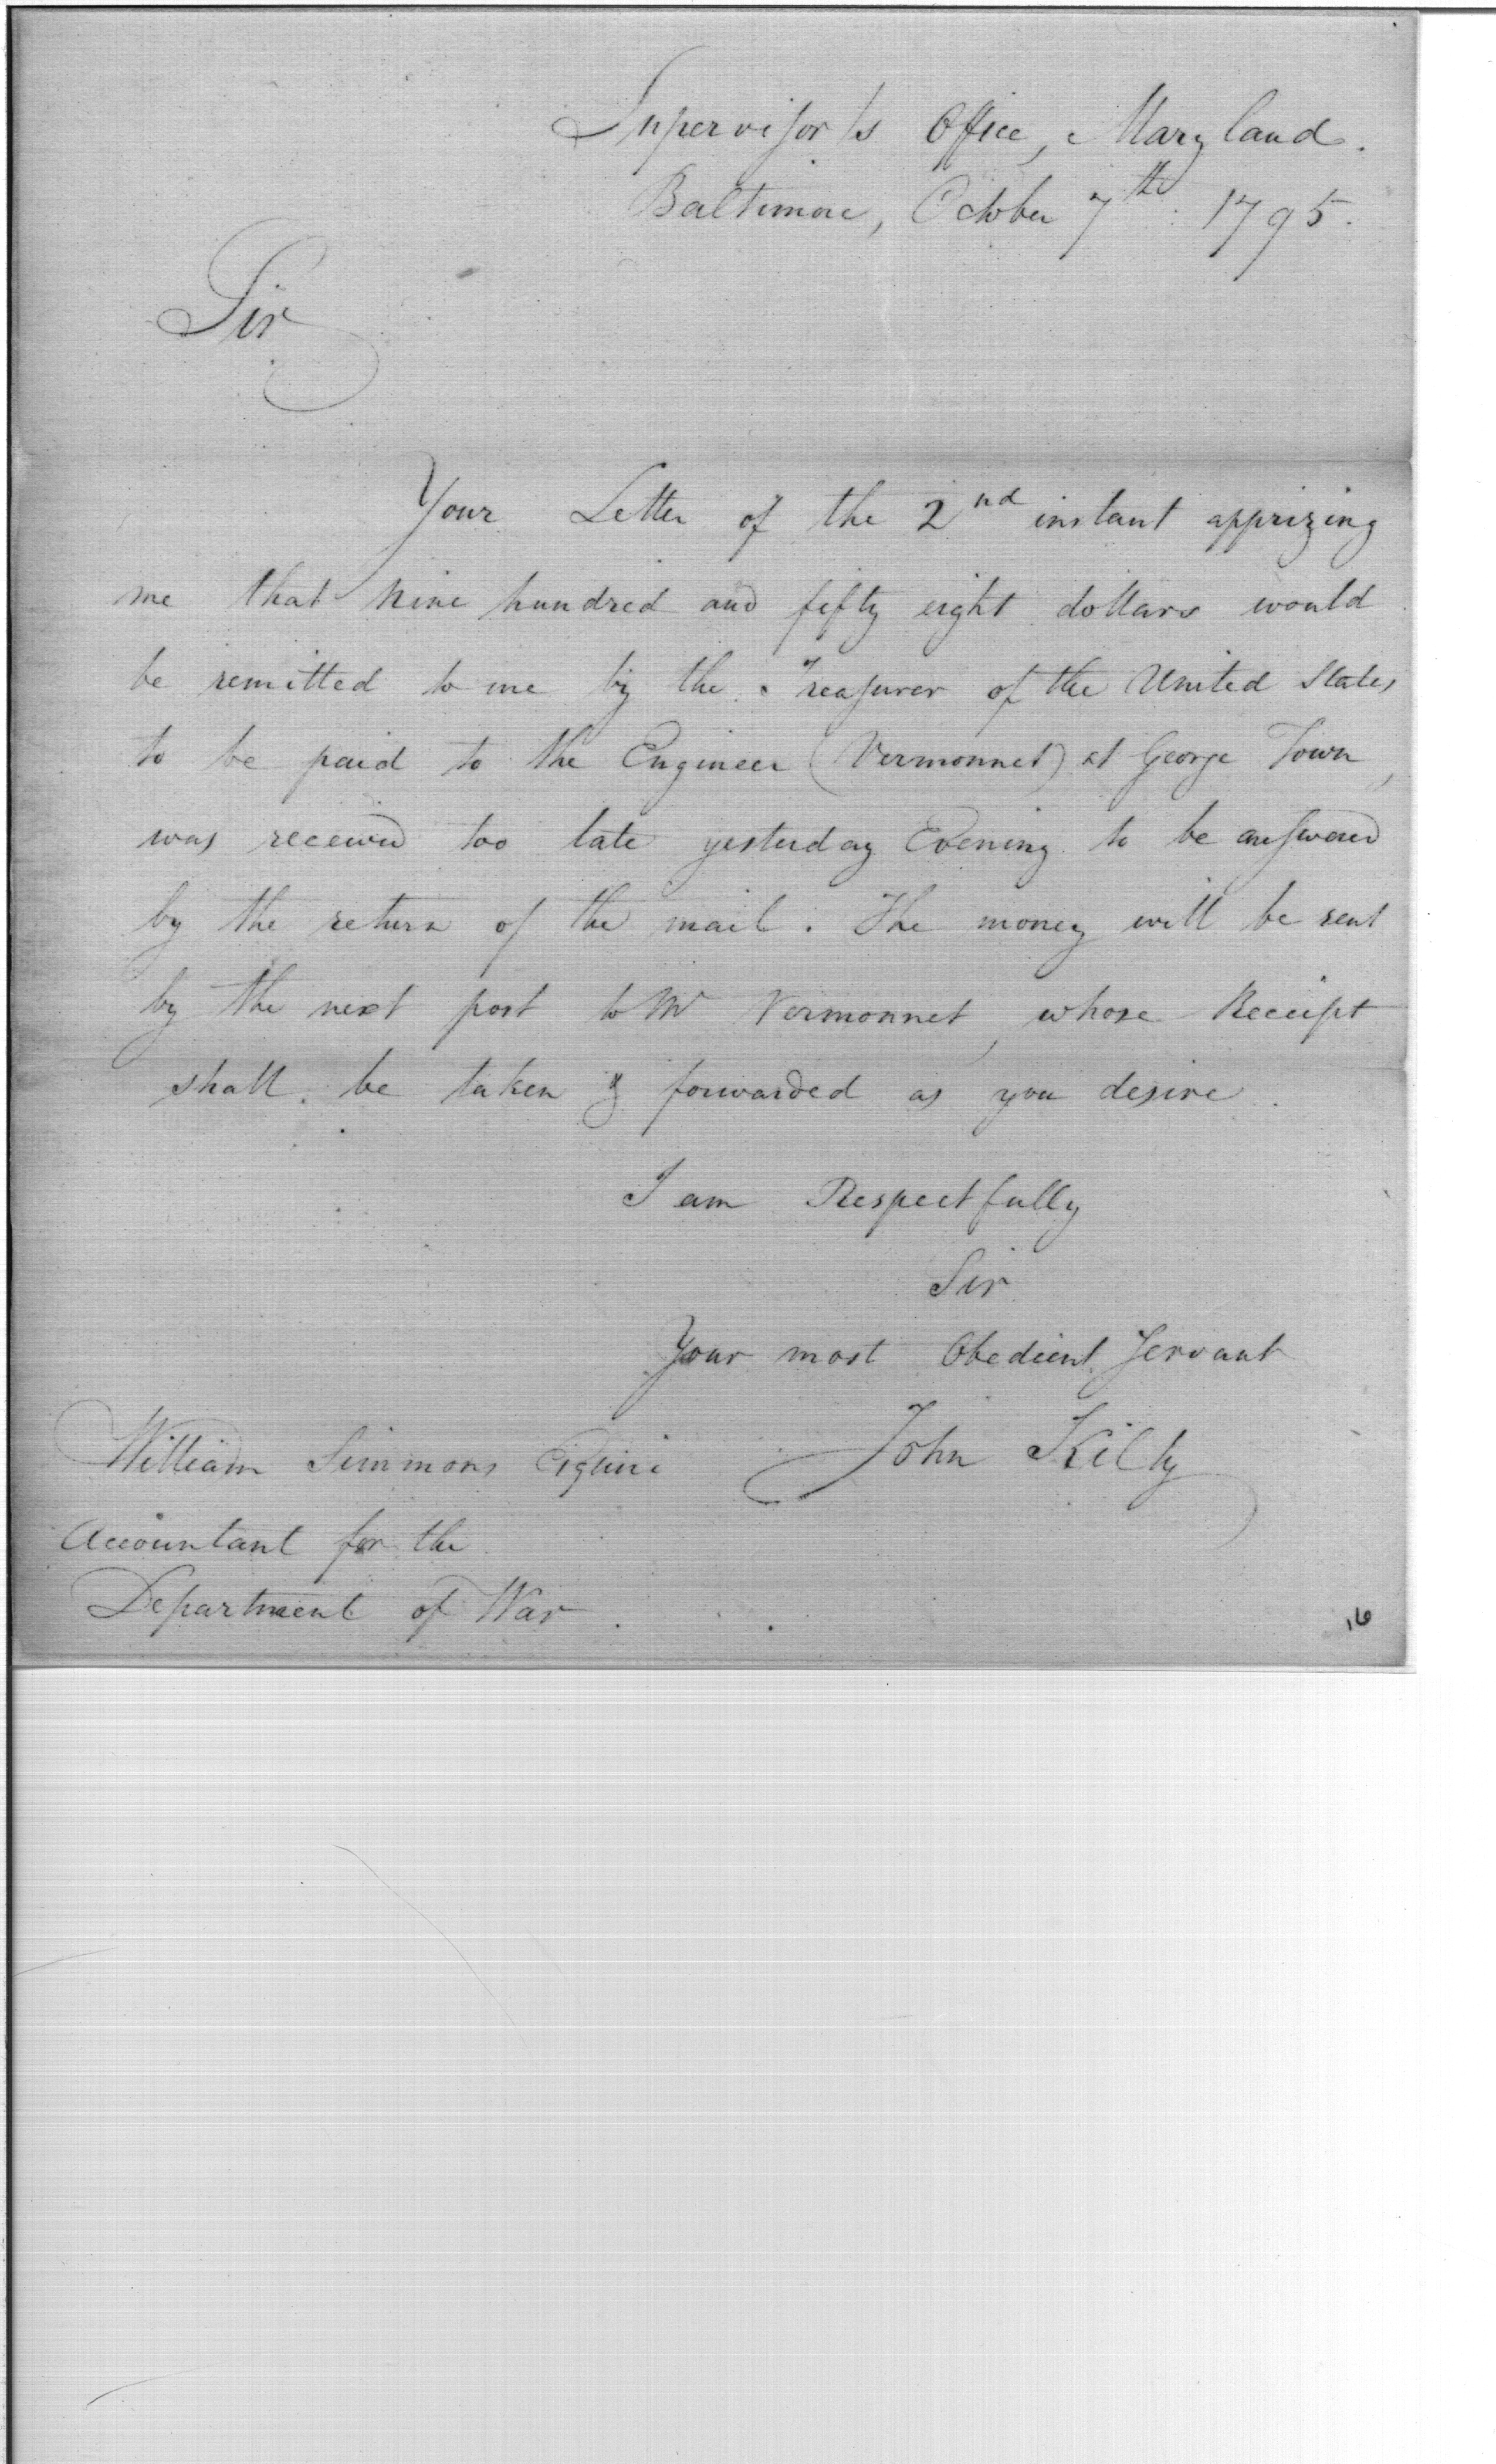 Supervisor's Office, Maryland.
Baltimore, October 7th 1795.
Sir
Your Letter of the 2nd instant apprizing
me that Nine hundred and fifty eight dollars would
be remitted to me by the Treasurer of the United States
to be paid to the Engineer (Vermonnet) at George Town,
was received too late yesterday Evening to be answered
by the return of the mail. The money will be sent
by the next post to Mr Vermonnet, whose Receipt
shall be taken & forwarded as you desire.
I am Respectfully
Sir
Your most Obedient Servant
John Kilty
William Simmons Esquire
Accountant for the
Department of War.
16